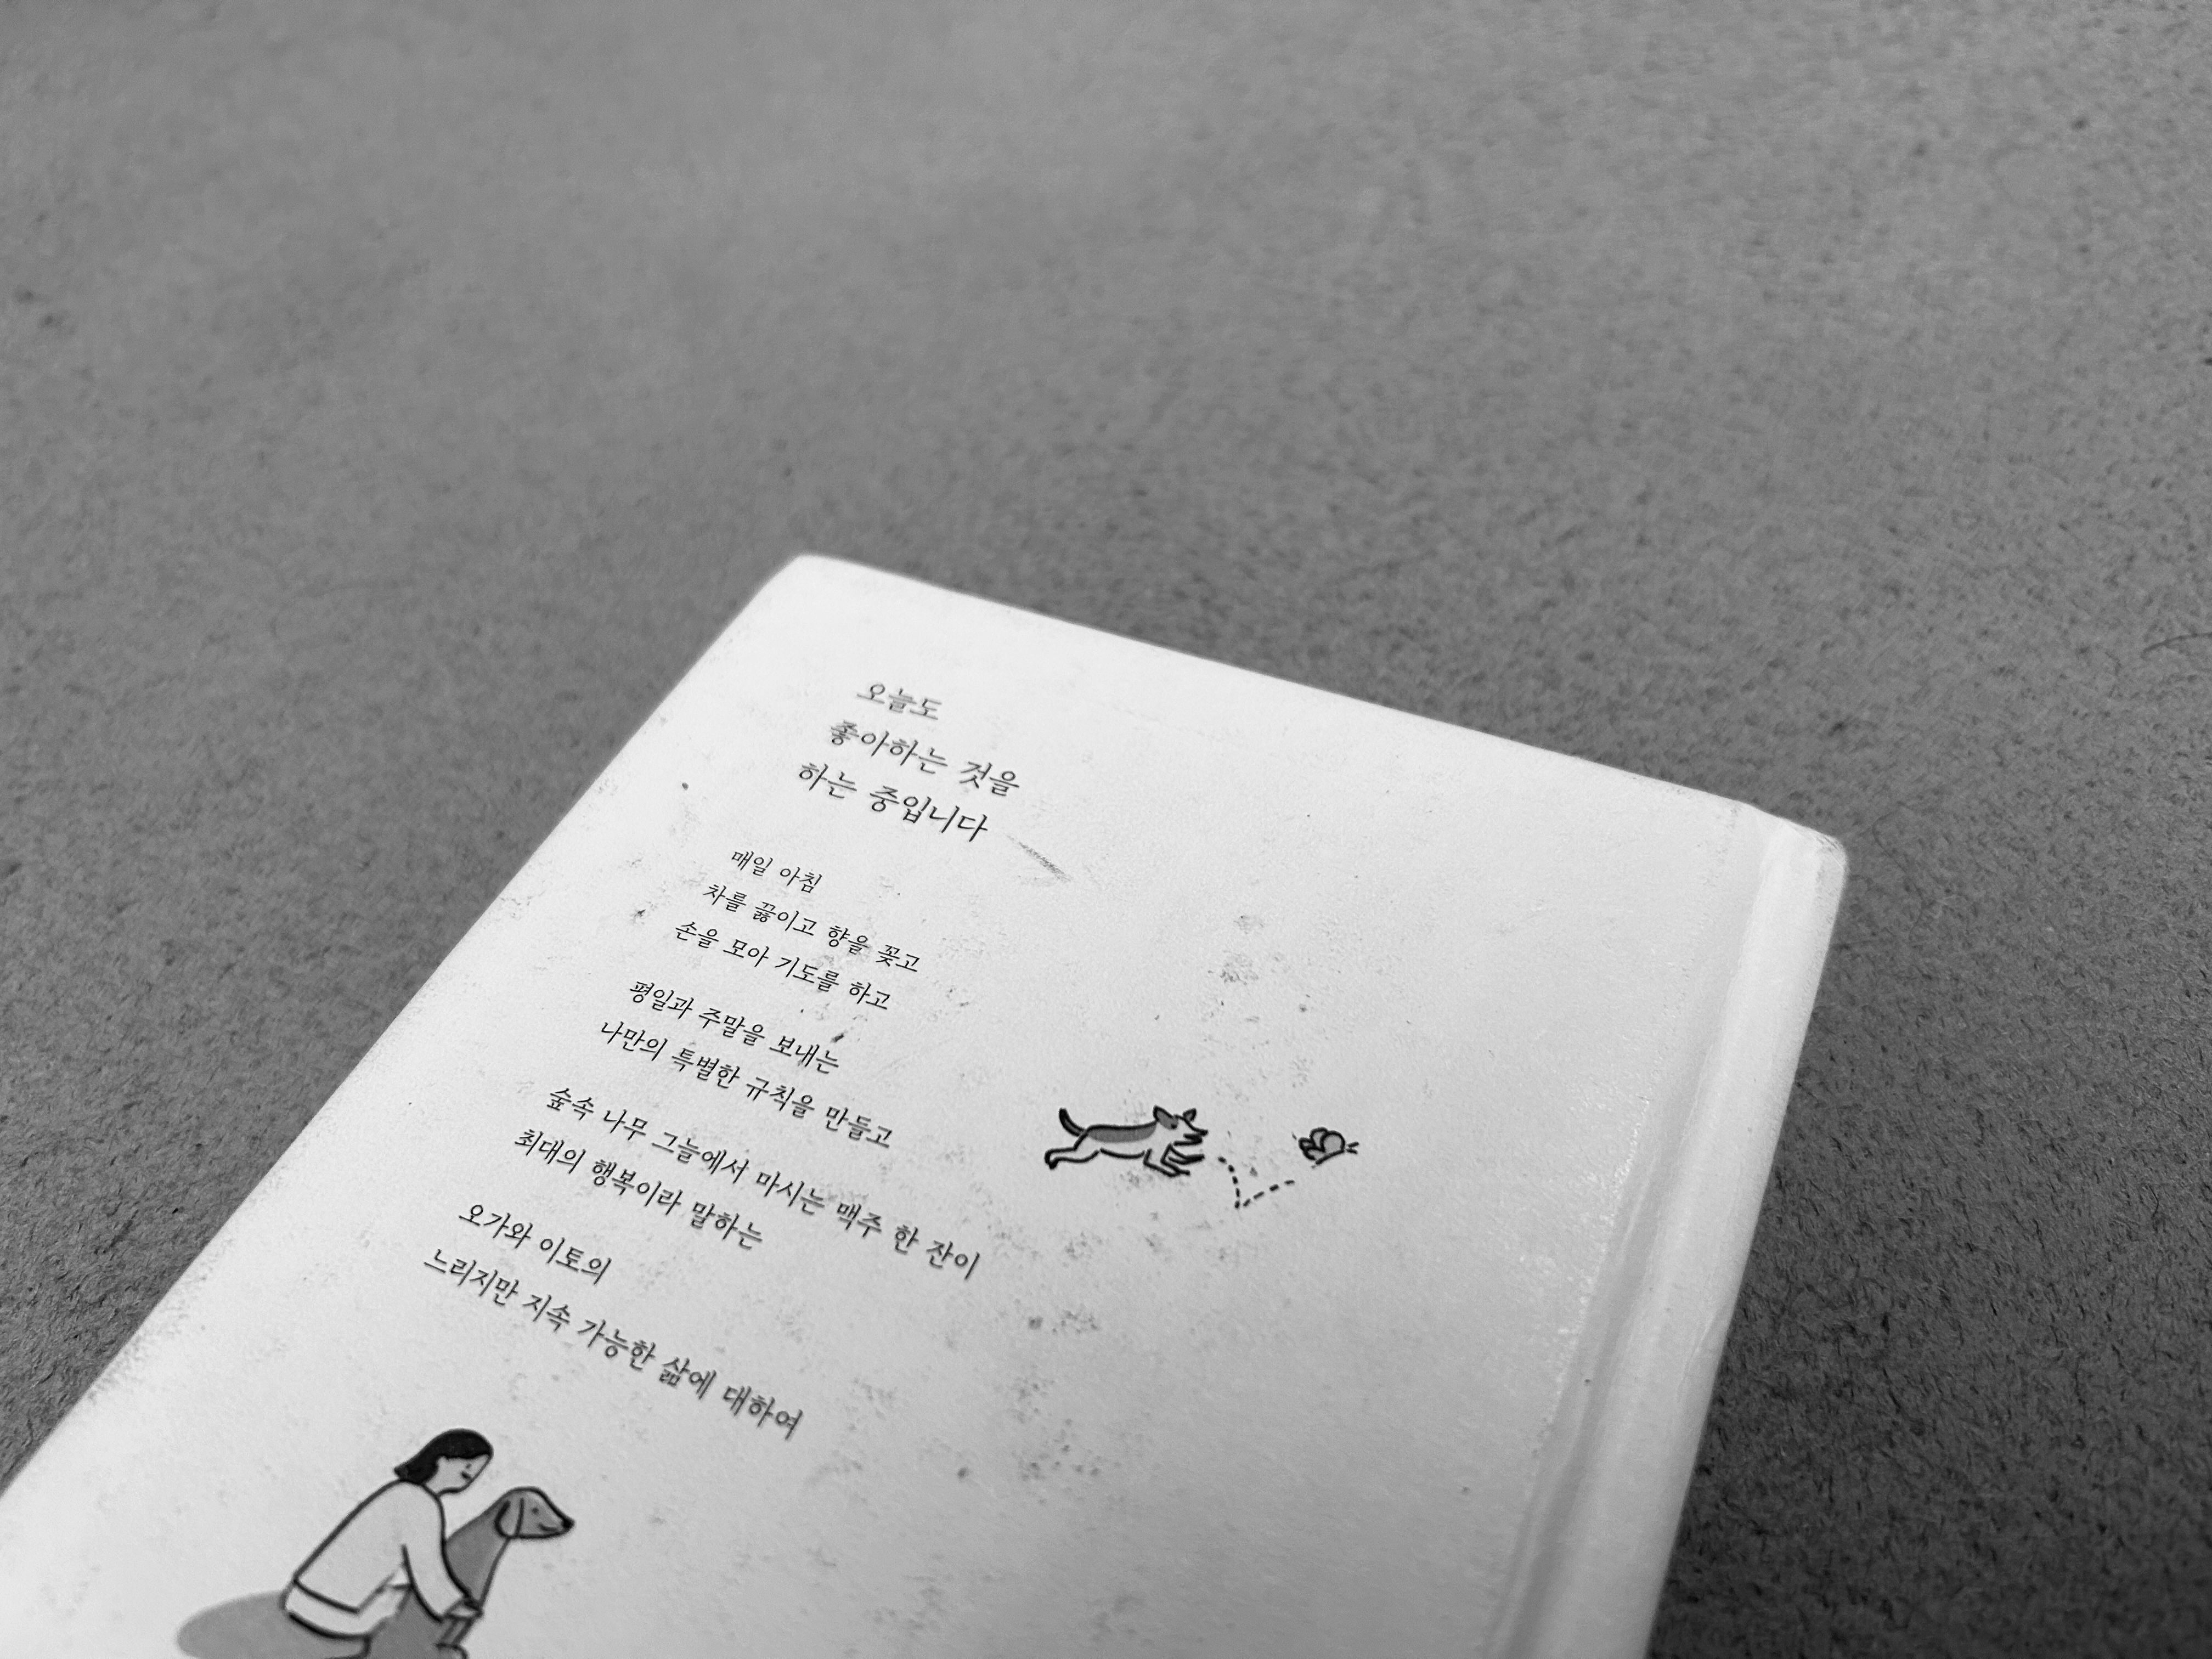 오늘도
좋아하는 것을
하는 중입니다
매일 아침
차를 끓이고 향을 꽂고
손을 모아 기도를 하고
평일과 주말을 보내는
나만의 특별한 규칙을 만들고
숲속 나무 그늘에서 마시는 맥주 한 잔이
최대의 행복이라 말하는
오가와 이토의
느리지만 지속 가능한 삶에 대하여